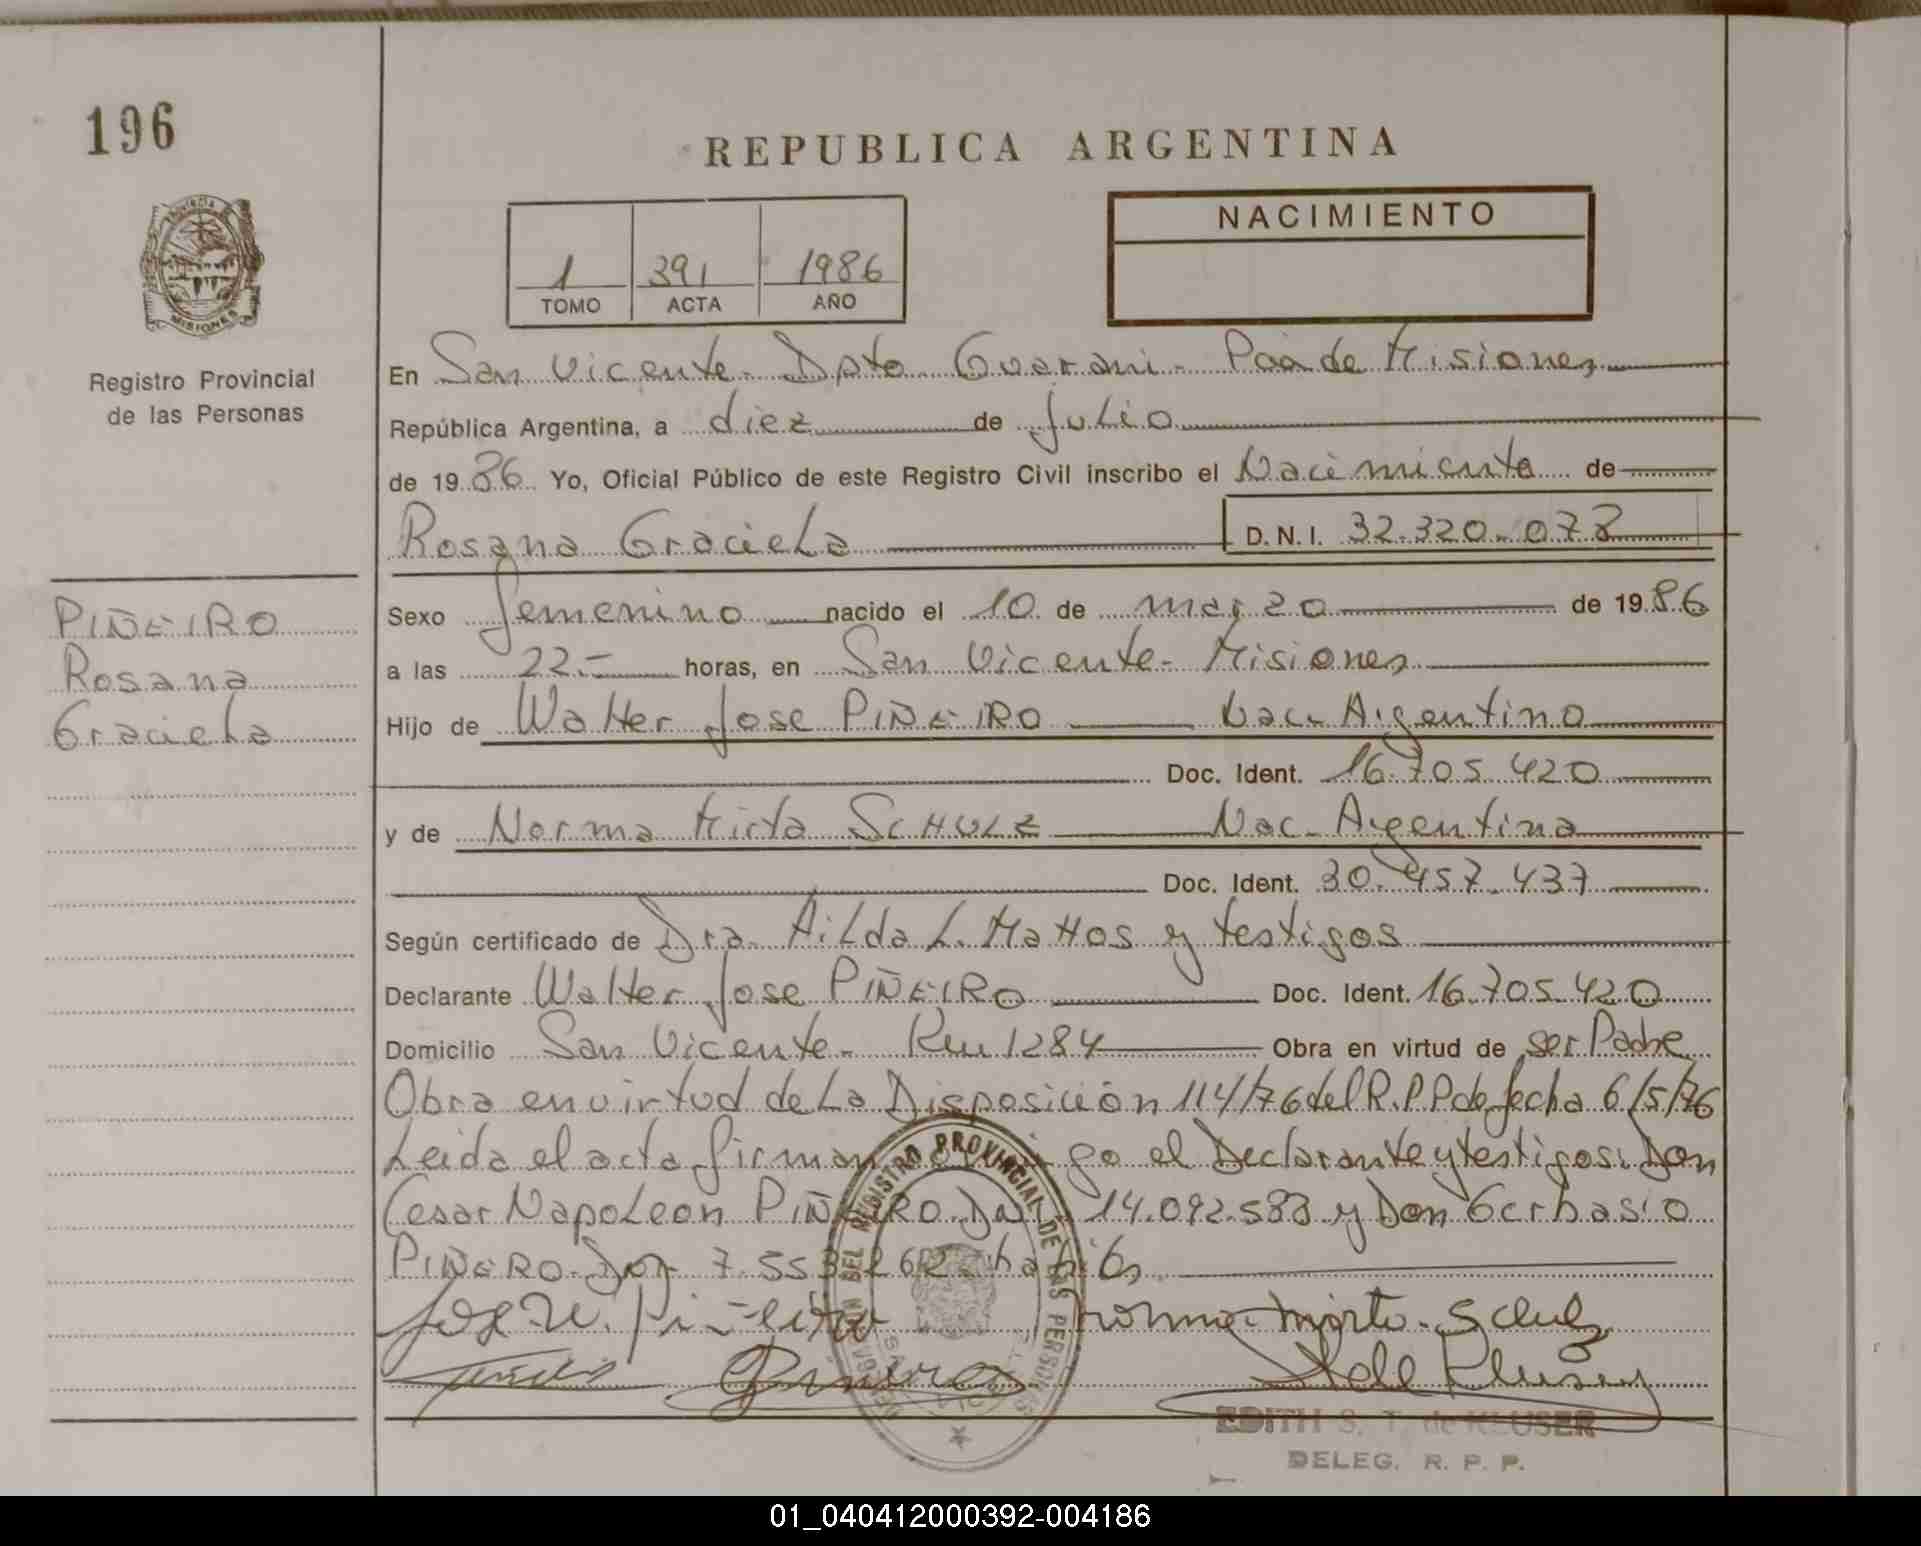 196
REPUBLICA ARGENTINA
NACIMIENTO
1 391 1986
TOMO ACTA AÑO
PROVINCIA DE
MISIONES
Registro Provincial
de las Personas
En San Vicente - Dpto Guarani - Pcia de Misiones
República Argentina, a diez de Julio
de 1986 Yo, Oficial Público de este Registro Civil inscribo el Nacimiento de
Rosana Graciela D.N.I. 32.320.078
PIÑEIRO
Rosana
Graciela
Sexo femenino nacido el 10 de marzo de 1986
a las 22.- horas, en San Vicente - Misiones
Hijo de Walter Jose PIÑEIRO Nac. Argentino
Doc. Ident. 16.705.420
y de Norma Mirta SCHULZ Nac. Argentina
Doc. Ident. 30.457.437
Según certificado de Dra. Ailda L. Mattos y testigos
Declarante Walter Jose PIÑEIRO Doc. Ident. 16.705.420
Domicilio San Vicente - Km 1284 Obra en virtud de ser Padre
Obra en virtud de la Disposición 114/76 del R.P.P de fecha 6/5/76
Leida el acta firman go el Declarante y testigos: Don
Cesar Napoleon PIÑEIRO DNI 14.092.583 y Don Gerbasio
PIÑERO 7.553.262
Norma Mirta Schulz
EDITH S. T. de KLUSER
DELEG. R. P. P.
DEL REGISTRO PROVINCIAL DE LAS PERSONAS
01_040412000392-004186